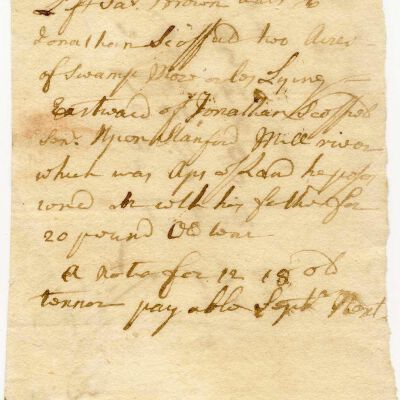 Brown
Jonathan Scoffeld two Acres
of Swamp More or les Lying
Eastward of Jonathan Scoffeld
Senr. Upon Stanford Mill river
which was a ps of Land he
with his father for
20 pound Old tenr
a note for 12 18 old
tennor payable Septbr Next